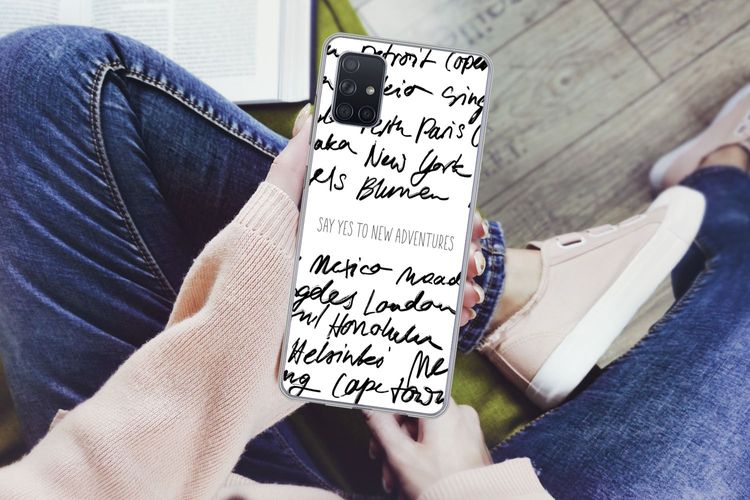 Detroit Cope
eio Sing
Perth Paris
aka New York
els Blumen
SAY YES TO NEW ADVENTURES
Mexico Maad
geles London
Honolulu
Helsinki Me
ng Capetown